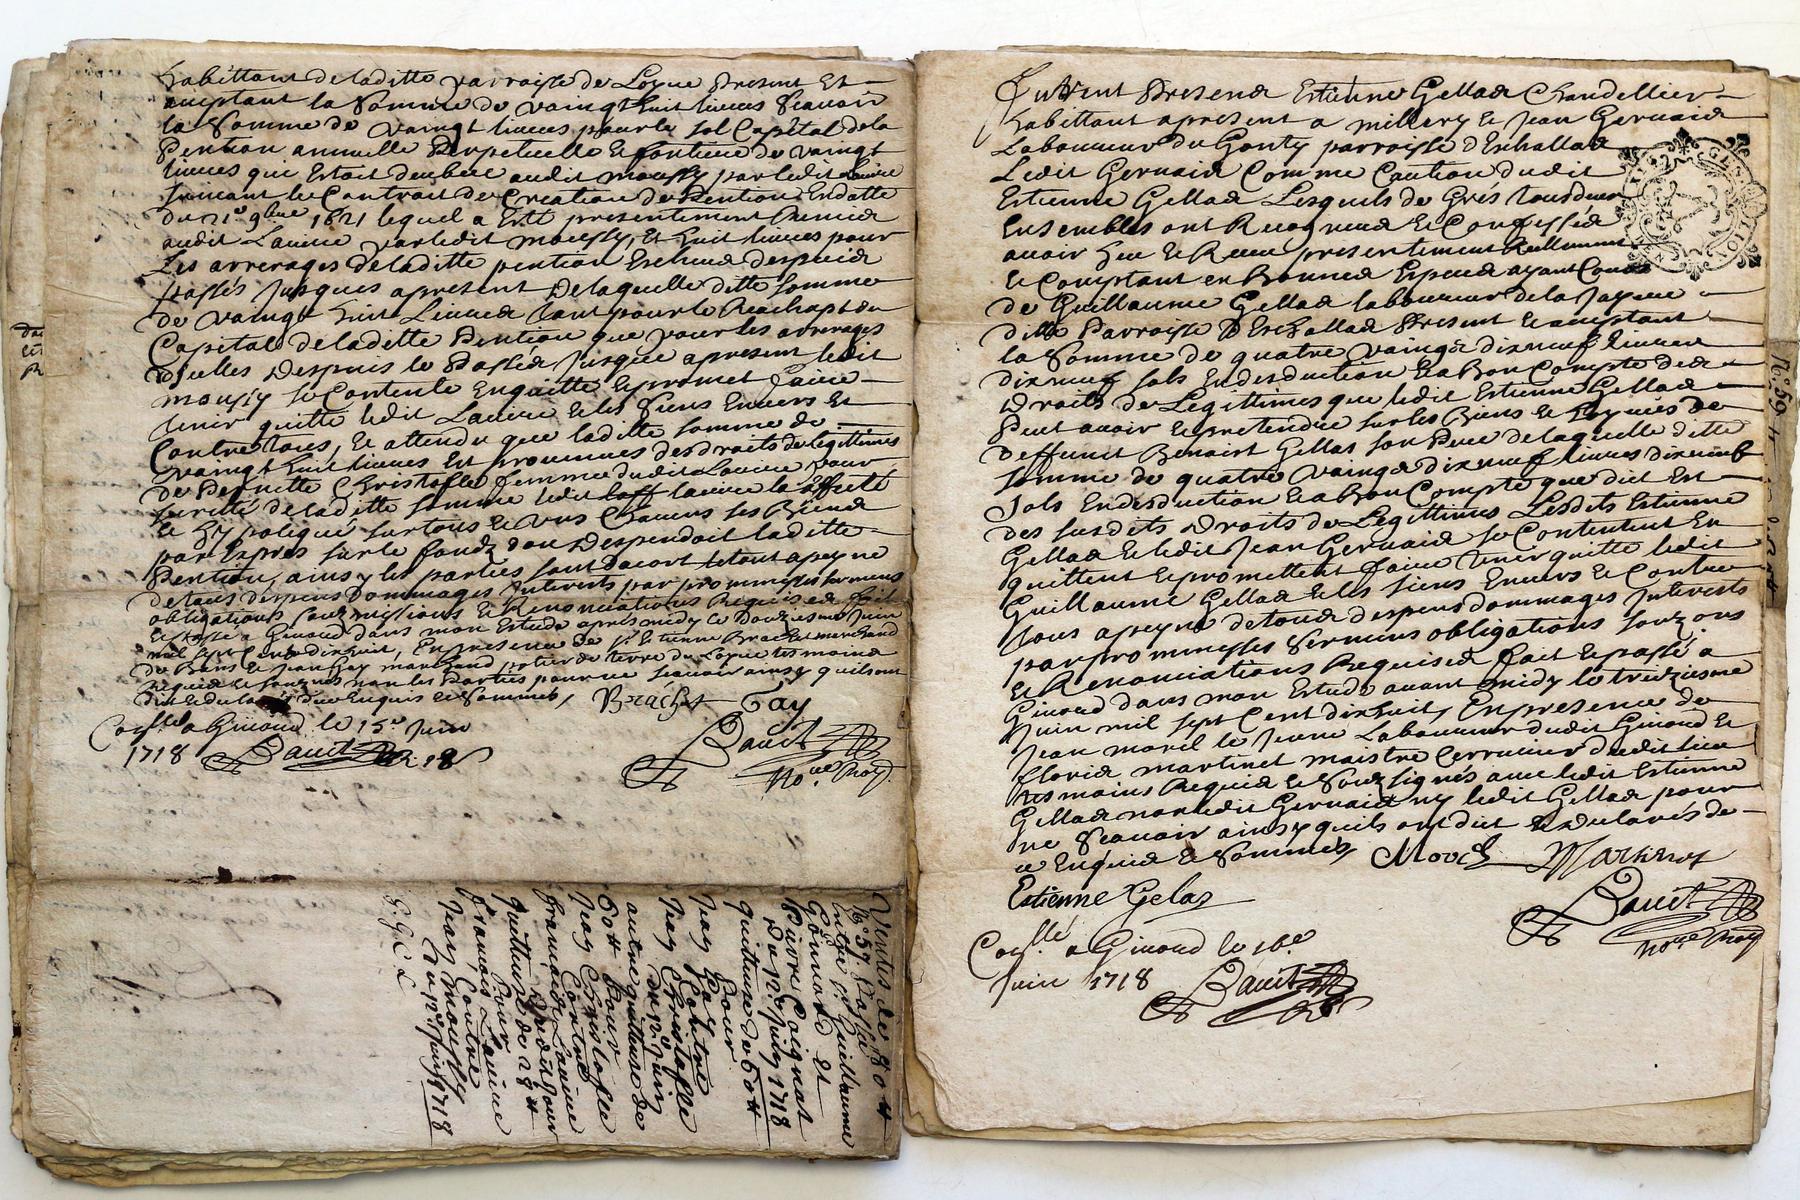 habittant de laditte parroisse de Loyne present et
acceptant la somme de vaingt huit livres scauoir
la somme de vaingt livres pour le sol Capital de la
Pention annuelle Perpetuelle et fontiere de vaingt
livres qui estoit deube audit moussy par ledit Lauire
suivant le Contrait de Creation de Pention En datte
du 21e 9bre 1621 lequel a Esté presentement
audit Lauire par ledit moussy, Et huit livres pour
Les arrerages de laditte pention Escheus despuis
passés Jusques apresent De laquelle ditte somme
de vaingt huit Livres tant pour le Reachapt du
Capital de laditte Pention que pour les arrerages
d'Icelles Despuis le Passés Jusque apresent ledit
moussy se Contente En quitte Et promet faire
tenir quitte ledit Lauire et les siens Envers Et
Contre tous, Et attendu que laditte somme de
vaingt huit livres Est prouenues des droits de legittimes
de Pernette Christofle femme dudit Lauire pour
seurtté de laditte somme ledit Lauire la affecté
et Hypotequé sur tous et vns Chacuns ses Biens
par Expres sur le fondz dou Despendoit laditte
Pention, ainsy les parties sont dacort le tout apeyne
de tous despens Dommages Interests par prommesses sermens
obligations soubzmissions et Renonciations Requises fait
et Passé a Giuord dans mon Estude apres midy le Douziesme Juin
mil sept Cents dix huit, En presence de Sr Etienne Brachet marchand
de Bans et Jean Gay marchand potier de terre du Loyne tesmoins
Requis et soubzsignés non les Parties pour ne scauoir ainsy quils ont
dit et declaré due Enquis et sommés, Brachet Gay
Conllé a Giuord le 15e Juin
1718 Bauet Bauet
Noue Roy.
Ventes de 80 #
No. 59. Passé
Entre Sr Guillaume
Goiunard Et
Pierre Coignat
Du 12e Juin 1718
quittance de 60 #
Pour
Jean Gay
Contre
Jean Christofle
Du 12e Juin
autre quittance de
60 # Pour
Jean Christofle
Contre
francois Lauire
Dudit Jour
quittance de 28 #
Pour
francois Lauire
Contre
Jean Moussy
Du 12e Juin 1718
Furent Presens Estienne Gellas Chandellier
habittant apresent a millery et Jean Gervais
Laboureur du Gonty parroisse d'Eschallas
Ledit Gervais Comme Caution dudit
Estienne Gellas Lesquels de Grés tous deux
Ensembles ont Recognus et Confessés
auoir heu et Receu presentement Reellement
et Comptant en Bonnes Especes ayant Cours
de Guillaume Gellas laboureur de la Jaynee
ditte Parroisse D'Eschallas Present et acceptant
la somme de quatre vaingts dix neuf livres
dix neuf sols En desduction Et a Bon Compte des
Droits de Legittimes que ledit Estienne Gellas
Peut auoir et pretendre sur les Biens et hoyries de
deffunt Benoist Gellas son Pere de laquelle ditte
somme de quatre vaingts dix neuf livres dix neuf
sols En desduction et a Bon Compte que dit Est
des susdits Droits de Legittimes Lesdits Estienne
Gellas et ledit Jean Gervais se Contentent En
quittent et promettent faire tenir quitte ledit
Guillaume Gellas et les siens Envers et Contre
tous apeyne de tous despens dommages Interests
par prommesses sermens obligations soubzons
et Renonciations Requises fait et passé a
Giuord dans mon Estude auant midy le treiziesme
Juin mil sept Cent dix huit, En presence de
Jean morel le Jeune Laboureur dudit Giuord Et
floris martinet maistre Cerrurier dudit lieu
tesmoins Requis et soubzsignés auec ledit Estienne
Gellas non ledit Gervais ny ledit Gellas pour
ne scauoir ainsy quils ont dit et declarés de
ce Enquis et sommés Morel Martinet
Estienne Gelas
Conllé a Giuord le 16e Bauet
Juin 1718 Bauet Noue Roy
GENERALITE LION
No. 59